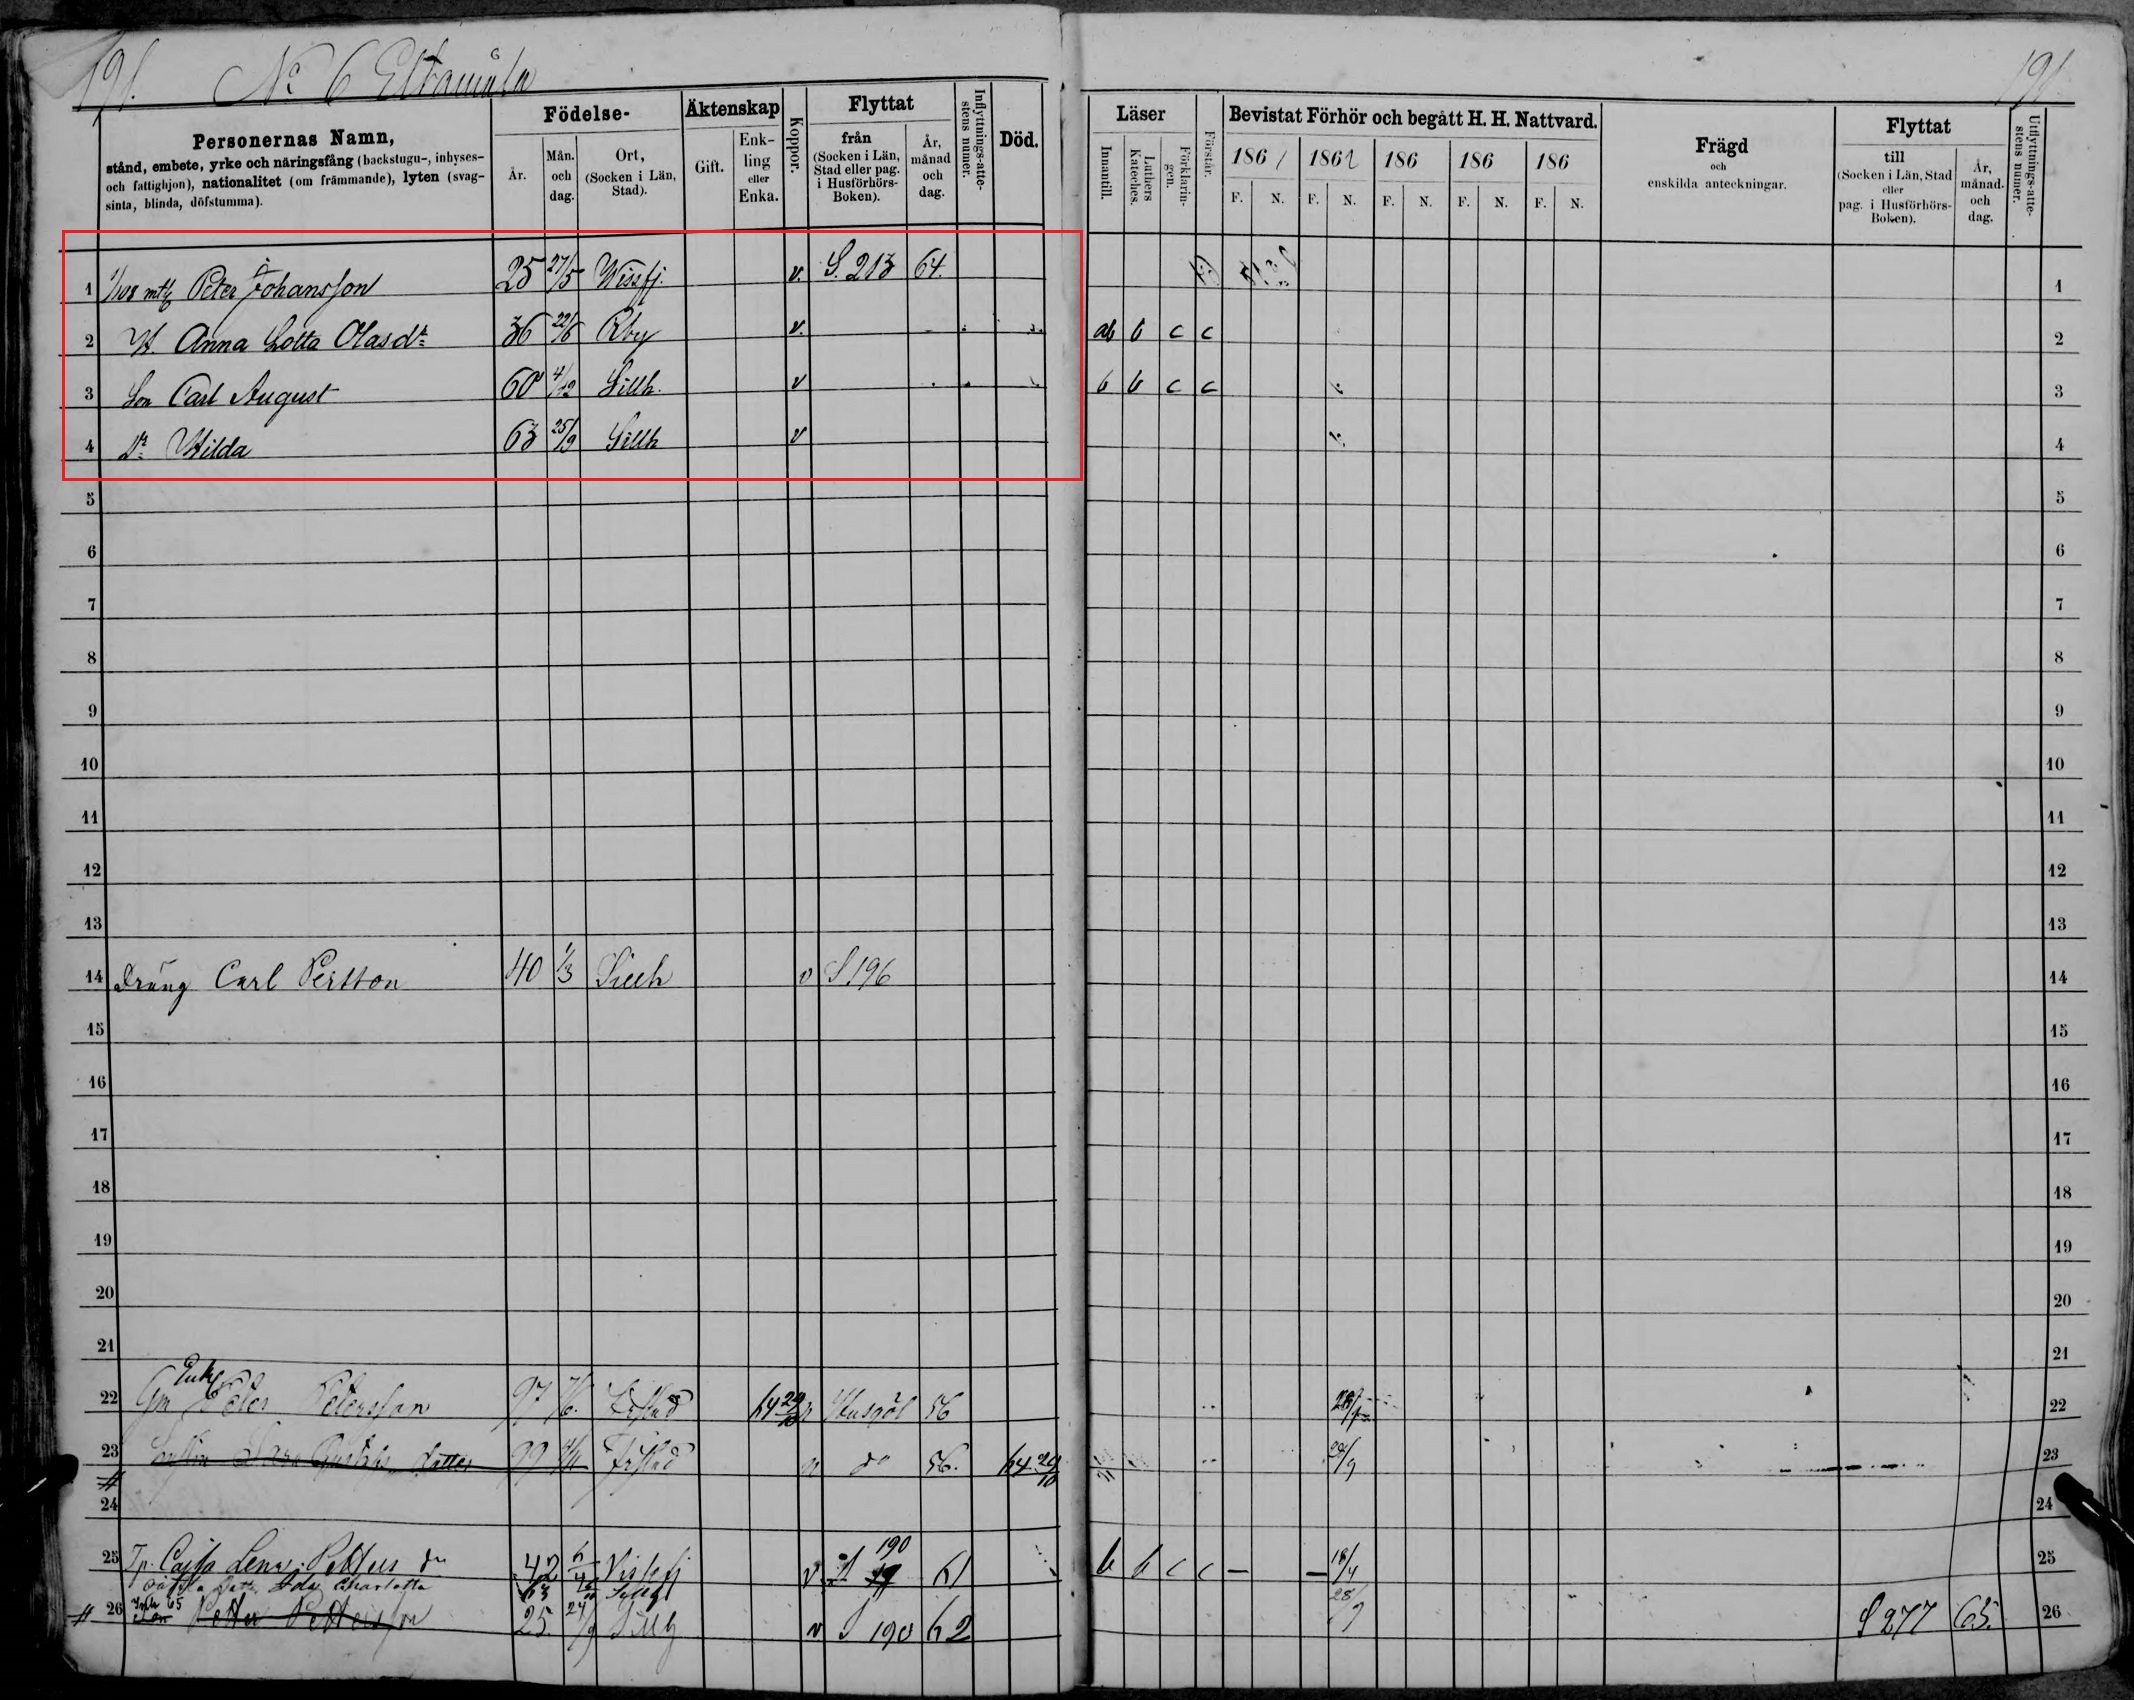 191. No 6 Eltamåla 191.
Personernas Namn,
stånd, embete, yrke och näringsfång (backstugu-, inhyses-
och fattighjon), nationalitet (om främmande), lyten (svag-
sinta, blinda, döfstumma).
Födelse-
År.
Mån.
och
dag.
Ort,
(Socken i Län,
Stad).
Äktenskap
Gift.
Enk-
ling
eller
Enka.
Koppor.
Flyttat
från
(Socken i Län,
Stad eller pag.
i Husförhörs-
Boken).
År,
månad
och
dag.
Inflyttnings-atte-
stens numer.
Död.
Läser
Innantill.
Luthers
Kateches.
Förklarin-
gen.
Förstår.
Bevistat Förhör och begått H. H. Nattvard.
1861 1862 186 186 186
F. N. F. N. F. N. F. N. F. N.
Frägd
och
enskilda anteckningar.
Flyttat
till
(Socken i Län, Stad
eller
pag. i Husförhörs-
Boken).
År,
månad.
och
dag.
Utflyttnings-atte-
stens numer.
1 Peter Johansson 25 27/5 Wissfj. v. S. 213 64. 1
2 H. Anna Lotta Olasdr 36 22/6 Rby v. ab b c c 2
3 Son Carl August 60 4/12 Sillh. v b b c c 3
4 Dr Hilda 63 25/9 Sillh v 4
5 5
6 6
7 7
8 8
9 9
10 10
11 11
12 12
13 13
14 Dräng Carl Persson 40 1/3 Sillh v S 196 14
15 15
16 16
17 17
18 18
19 19
20 20
21 21
Enkl
22 Gm Peter Petersson 97 Fristad 64 29/10 v 56 22
23 99 Fristad v do 56. 64 29/10 28/9 23
24 24
190
25 Cajsa Lena Petters dr 42 Vissefj v 61 b b c c – – 18/4 25
oäkta Dattr Ida Charlotta 63 Sillh
26 Son Petter Pettersson 25 24/9 Sillh v S 190 62 28/9 S 277 65. 26